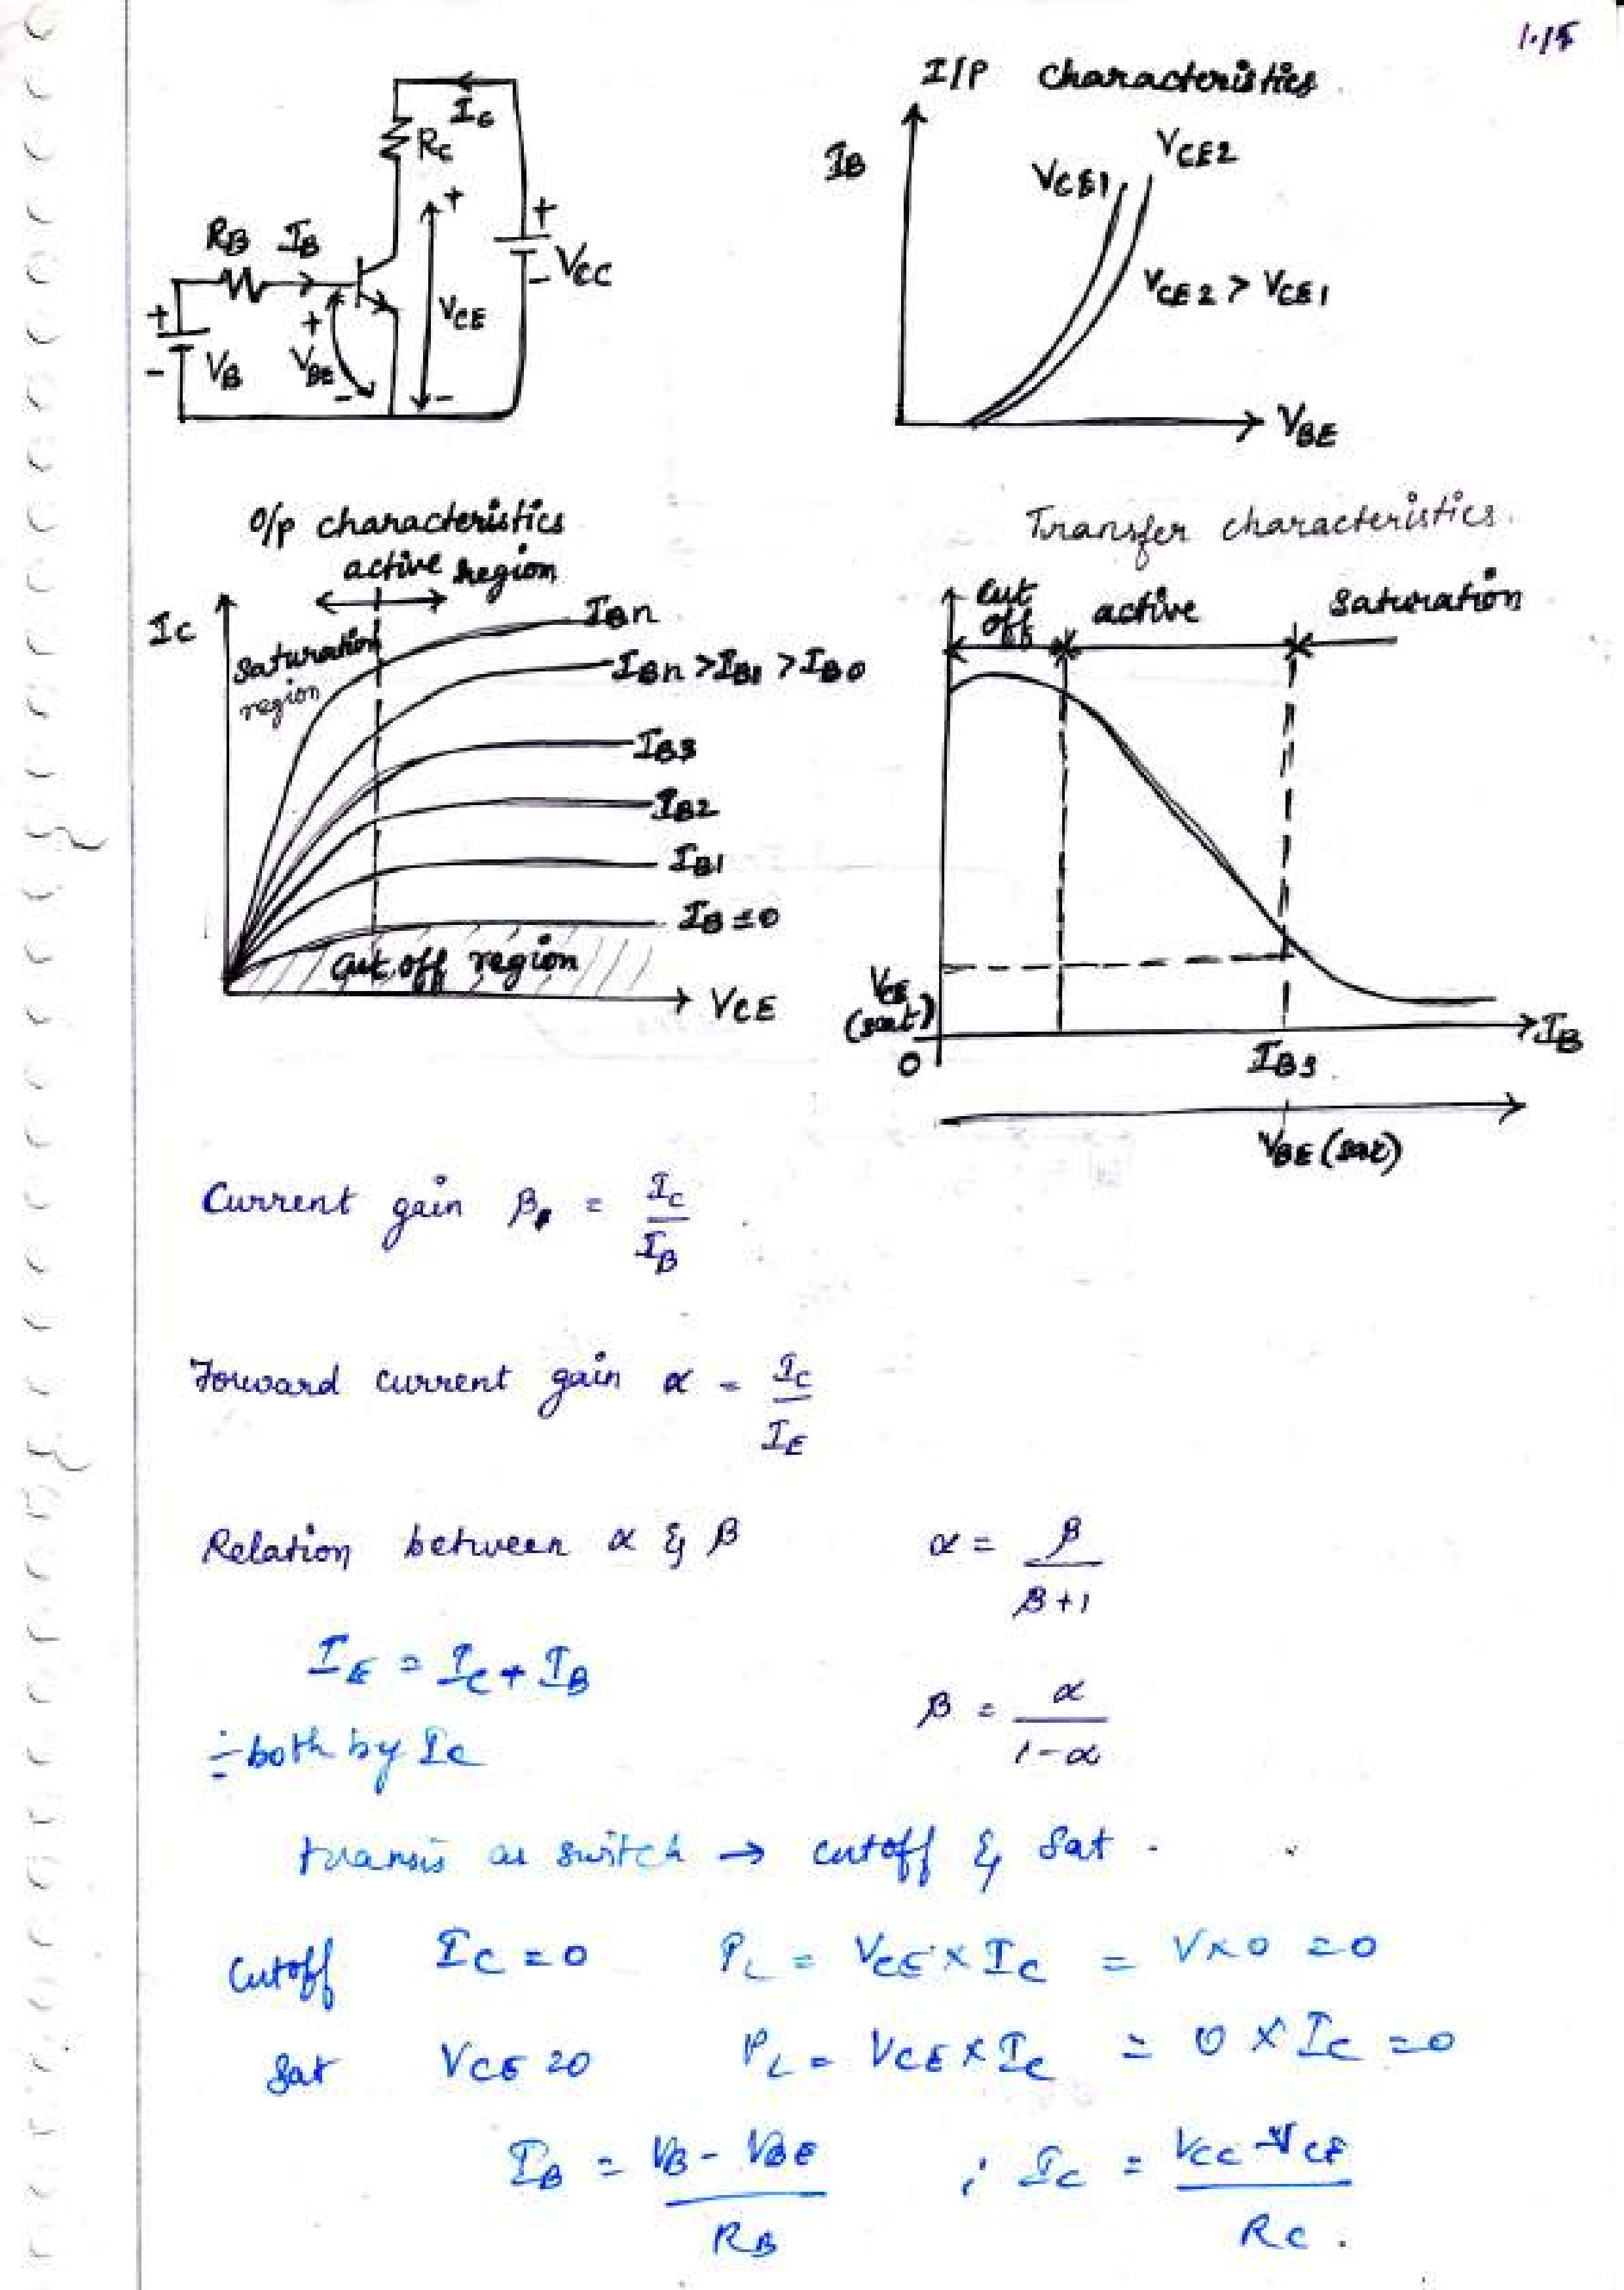 1.15
I/P characteristics
I_C
R_C
R_B I_B
+
V_CC
-
V_CE
+
-
+
V_BE
-
+
V_B
-
I_B
V_CE1
V_CE2
V_CE2 > V_CE1
V_BE
O/p characteristics
active region
I_C
Saturation region
I_Bn
I_Bn > I_B1 > I_B0
I_B3
I_B2
I_B1
I_B = 0
Cut off region
V_CE
Transfer characteristics.
Cut off
active
Saturation
V_CE (sat)
0
I_B3
I_B
V_BE (sat)
Current gain β = I_C / I_B
Forward current gain α = I_C / I_E
Relation between α & β α = β / β+1
I_E = I_C + I_B
β = α / 1-α
÷ both by I_C
transis as switch → cutoff & Sat.
Cutoff I_C = 0 P_L = V_CE × I_C = V×0 = 0
Sat V_CE = 0 P_L = V_CE × I_C = 0 × I_C = 0
I_B = V_B - V_BE / R_B ; I_C = V_CC - V_CE / R_C.